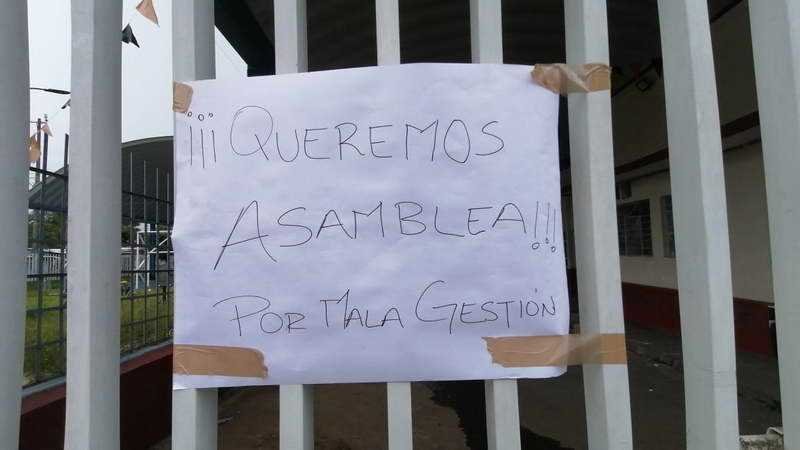 ¡¡¡QUEREMOS
ASAMBLEA!!!
POR MALA GESTIÓN